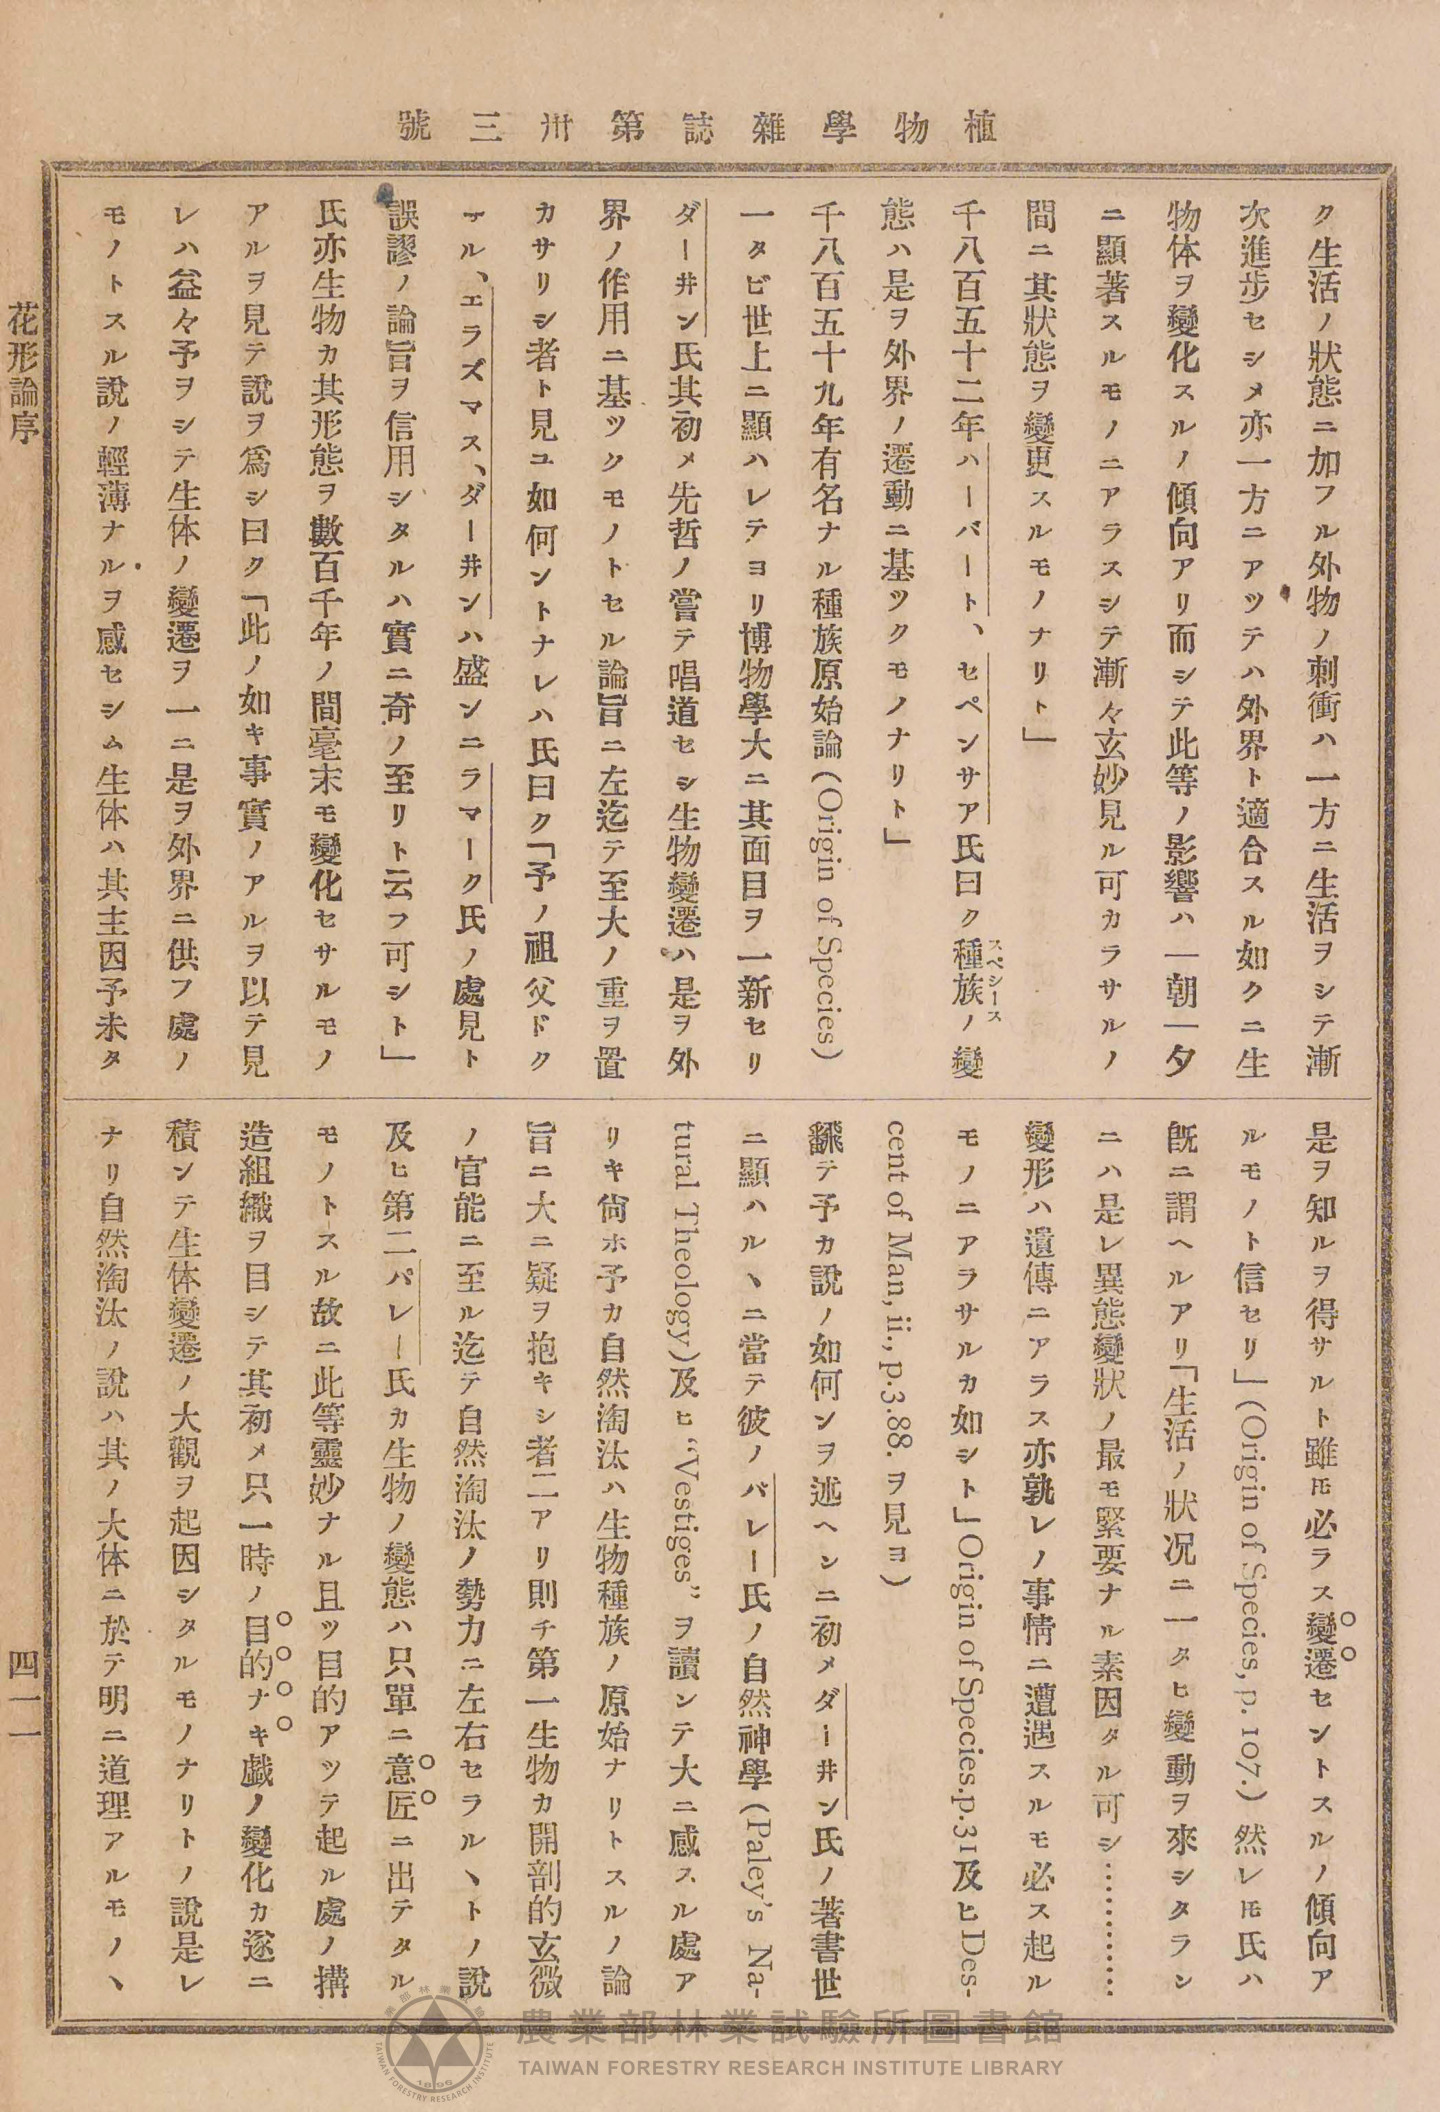 植物學雜誌第卅三號
ク生活ノ狀態ニ加フル外物ノ刺衝ハ一方ニ生活ヲシテ漸
次進步セシメ亦一方ニアツテハ外界ト適合スル如クニ生
物体ヲ變化スルノ傾向アリ而シテ此等ノ影響ハ一朝一夕
ニ顯著スルモノニアラスシテ漸々玄妙見ル可カラサルノ
間ニ其狀態ヲ變更スルモノナリト」
千八百五十二年ハーバート、セペンサア氏曰ク種族ノ變
スペシース
態ハ是ヲ外界ノ遷動ニ基ツクモノナリト」
千八百五十九年有名ナル種族原始論(Origin of Species)
一タビ世上ニ顯ハレテヨリ博物學大ニ其面目ヲ一新セリ
ダー井ン氏其初メ先哲ノ嘗テ唱道セシ生物變遷ハ是ヲ外
界ノ作用ニ基ツクモノトセル論旨ニ左迄テ至大ノ重ヲ置
カサリシ者ト見ユ如何ントナレハ氏曰ク「予ノ祖父ドク
テル、エラズマス、ダー井ンハ盛ンニラマーク氏ノ處見ト
誤謬ノ論旨ヲ信用シタルハ實ニ奇ノ至リト云フ可シト」
氏亦生物カ其形態ヲ數百千年ノ間毫末モ變化セサルモノ
アルヲ見テ說ヲ爲シ曰ク「此ノ如キ事實ノアルヲ以テ見
レハ益々予ヲシテ生体ノ變遷ヲ一ニ是ヲ外界ニ供フ處ノ
モノトスル說ノ輕薄ナルヲ感セシム生体ハ其主因予未タ
是ヲ知ルヲ得サルト雖𪜈必ラス變遷セントスルノ傾向ア
ルモノト信セリ」(Origin of Species, p. 107.)然レ𪜈氏ハ
旣ニ謂ヘルアリ「生活ノ狀况ニ一タヒ變動ヲ來シタラン
ニハ是レ異態變狀ノ最モ緊要ナル素因タル可シ…………
變形ハ遺傳ニアラス亦孰レノ事情ニ遭遇スルモ必ス起ル
モノニアラサルカ如シト」Origin of Species.p.31及ヒDes-
cent of Man, ii., p.3.88.ヲ見ヨ)
飜テ予カ說ノ如何ンヲ述ヘンニ初メダー井ン氏ノ著書世
ニ顯ハルヽニ當テ彼ノパレー氏ノ自然神學(Paley's Na-
tural Theology)及ヒ“Vestiges”ヲ讀ンテ大ニ感スル處ア
リキ尙ホ予カ自然淘汰ハ生物種族ノ原始ナリトスルノ論
旨ニ大ニ疑ヲ抱キシ者二アリ則チ第一生物カ開剖的玄微
ノ官能ニ至ル迄テ自然淘汰ノ勢力ニ左右セラルヽトノ說
及ヒ第二パレー氏カ生物ノ變態ハ只單ニ意匠ニ出テタル
モノトスル故ニ此等靈妙ナル且ツ目的アツテ起ル處ノ搆
造組織ヲ目シテ其初メ只一時ノ目的ナキ戱ノ變化カ遂ニ
積ンテ生体變遷ノ大觀ヲ起因シタルモノナリトノ說是レ
ナリ自然淘汰ノ說ハ其ノ大体ニ於テ明ニ道理アルモノヽ
花形論序
四一一
農業部林業試驗所圖書館
TAIWAN FORESTRY RESEARCH INSTITUTE LIBRARY